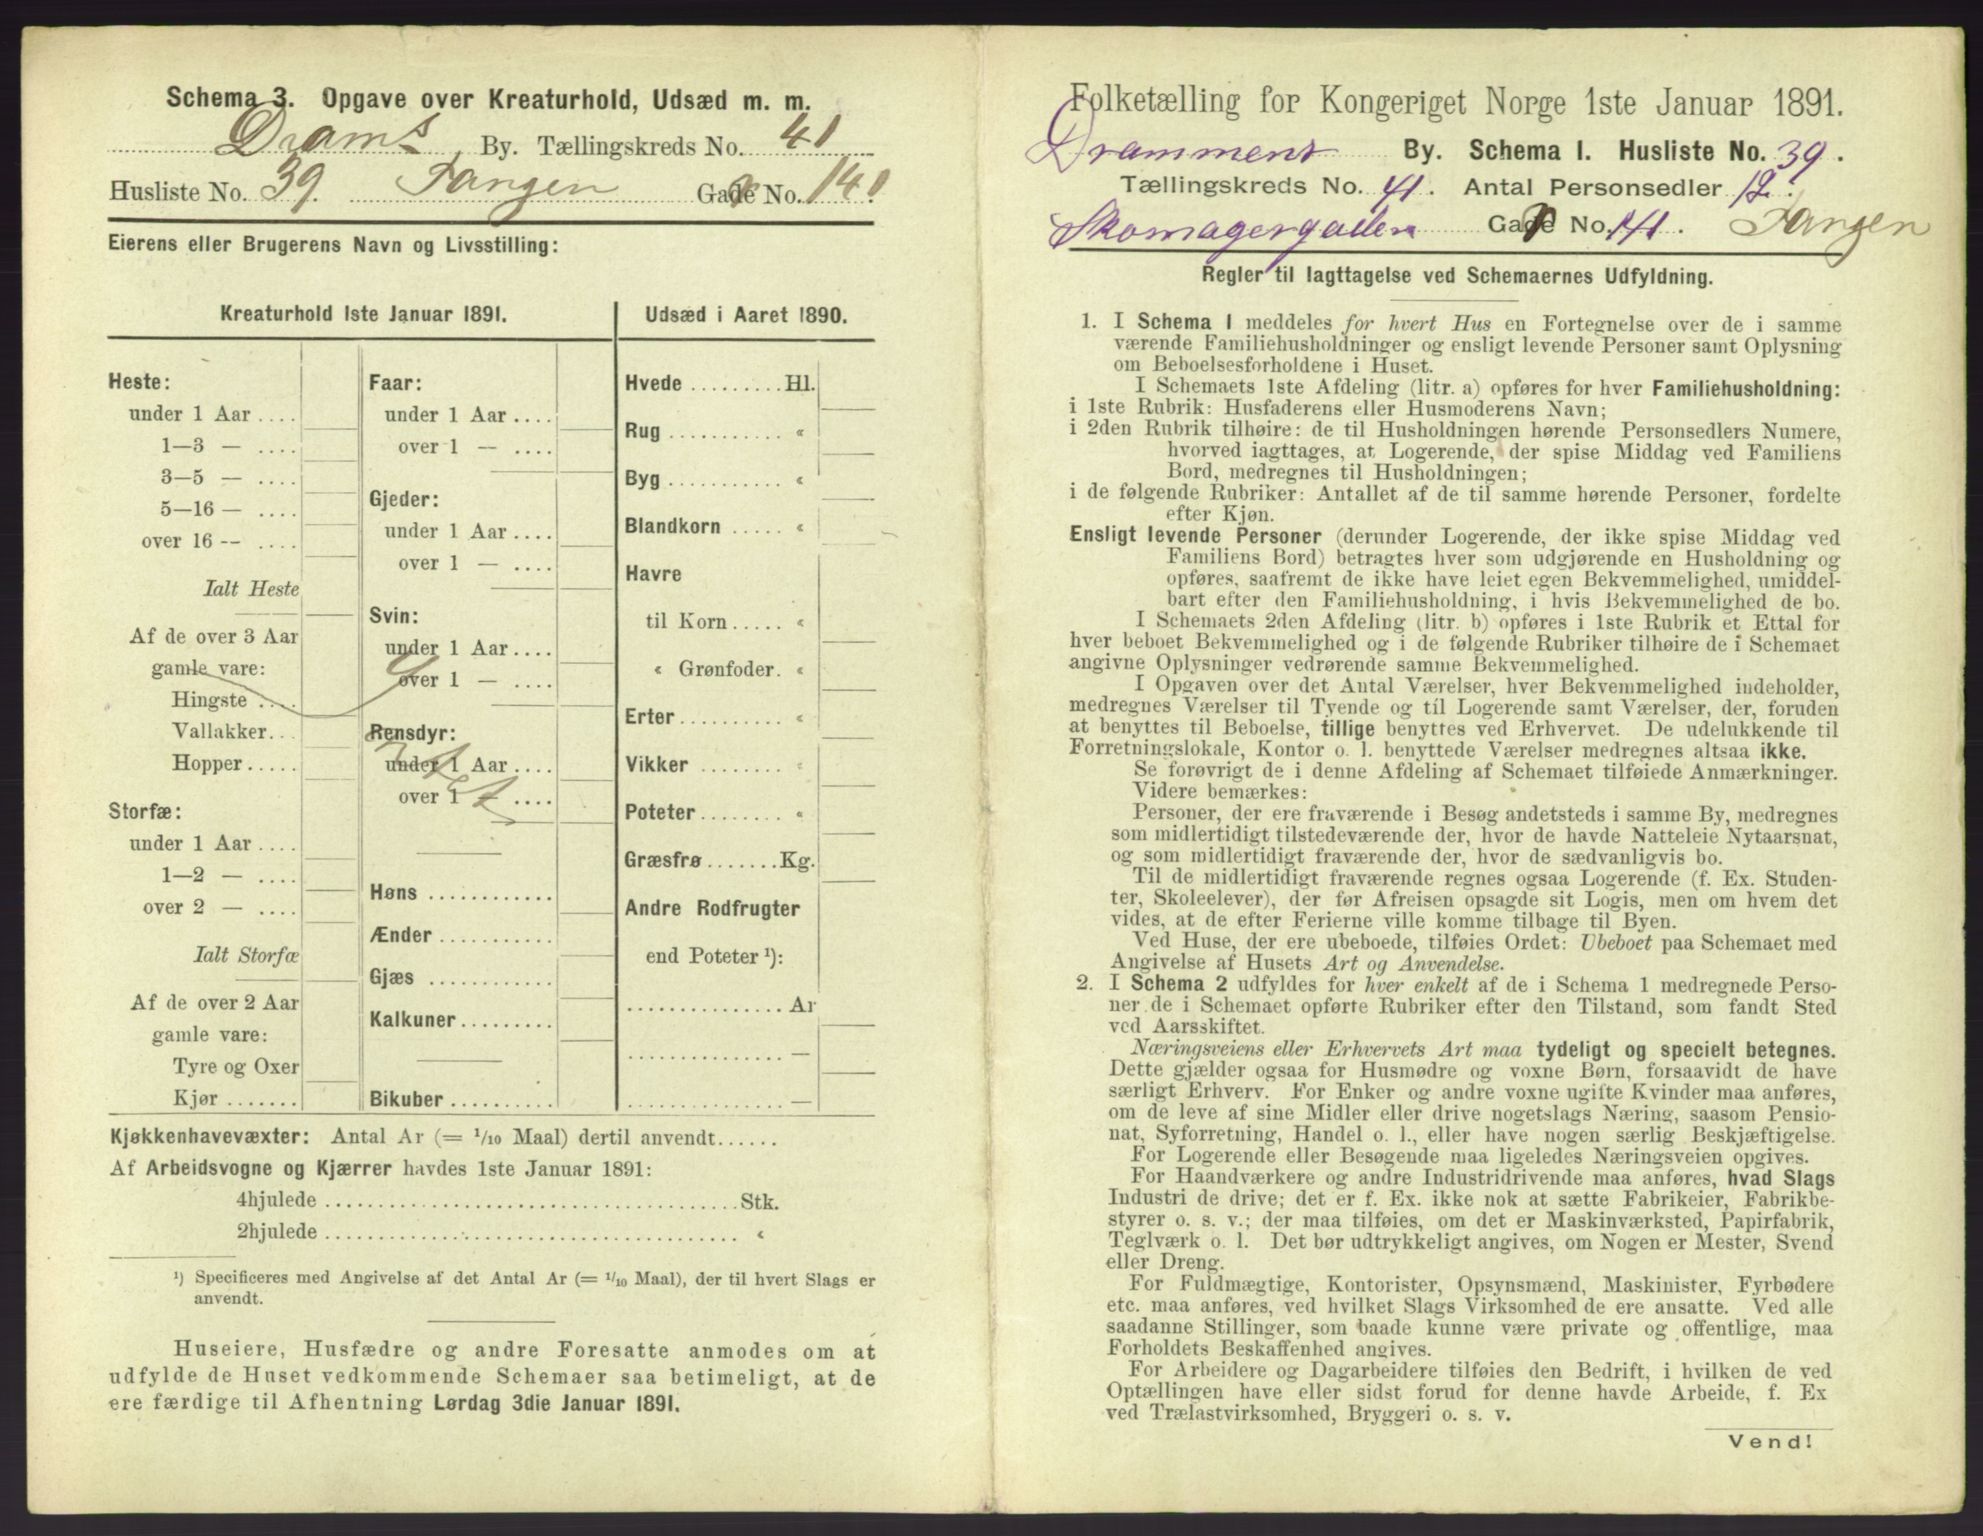 Schema 3. Opgave over Kreaturhold, Udsæd m. m.
Drams By. Tællingskreds No. 41
Husliste No. 39. Tangen Gade No. 141.
Eierens eller Brugerens Navn og Livsstilling:
Kreaturhold 1ste Januar 1891.
Heste:
under 1 Aar ....
1—3 — ....
3—5 — ....
5—16 — ....
over 16 -- ....
Ialt Heste
Af de over 3 Aar
gamle vare:
Hingste ....
Vallakker...
Hopper .....
Storfæ:
under 1 Aar ....
1—2 — ....
over 2 — ....
Ialt Storfæ
Af de over 2 Aar
gamle vare:
Tyre og Oxer
Kjør .......
Faar:
under 1 Aar ....
over 1 — ....
Gjeder:
under 1 Aar ....
over 1 — ....
Svin:
under 1 Aar ....
over 1 — ....
Rensdyr:
under 1 Aar ....
over 1 — ....
Høns ............
Ænder ...........
Gjæs ............
Kalkuner.........
Bikuber ..........
Udsæd i Aaret 1890.
Hvede .........Hl.
Rug ........... «
Byg ........... «
Blandkorn ..... «
Havre
til Korn ..... «
« Grønfoder. «
Erter.......... «
Vikker ........ «
Poteter........ «
Græsfrø .......Kg.
Andre Rodfrugter
end Poteter ¹):
............... Ar
............... —
............... —
Kjøkkenhavevæxter: Antal Ar (= 1/10 Maal) dertil anvendt......
Af Arbeidsvogne og Kjærrer havdes 1ste Januar 1891:
4hjulede ....................................Stk.
2hjulede .................................... «
¹) Specificeres med Angivelse af det Antal Ar (= 1/10 Maal), der til hvert Slags er
anvendt.
Huseiere, Husfædre og andre Foresatte anmodes om at
udfylde de Huset vedkommende Schemaer saa betimeligt, at de
ere færdige til Afhentning Lørdag 3die Januar 1891.
Folketælling for Kongeriget Norge 1ste Januar 1891.
Drammens By. Schema I. Husliste No. 39.
Tællingskreds No. 41. Antal Personsedler 12.
Skomagergaden Gade No. 141. Tangen
Regler til Iagttagelse ved Schemaernes Udfyldning.
1. I Schema I meddeles for hvert Hus en Fortegnelse over de i samme
værende Familiehusholdninger og ensligt levende Personer samt Oplysning
om Beboelsesforholdene i Huset.
I Schemaets 1ste Afdeling (litr. a) opføres for hver Familiehusholdning:
i 1ste Rubrik: Husfaderens eller Husmoderens Navn;
i 2den Rubrik tilhøire: de til Husholdningen hørende Personsedlers Numere,
hvorved iagttages, at Logerende, der spise Middag ved Familiens
Bord, medregnes til Husholdningen;
i de følgende Rubriker: Antallet af de til samme hørende Personer, fordelte
efter Kjøn.
Ensligt levende Personer (derunder Logerende, der ikke spise Middag ved
Familiens Bord) betragtes hver som udgjørende en Husholdning og
opføres, saafremt de ikke have leiet egen Bekvemmelighed, umiddel-
bart efter den Familiehusholdning, i hvis Bekvemmelighed de bo.
I Schemaets 2den Afdeling (litr. b) opføres i 1ste Rubrik et Ettal for
hver beboet Bekvemmelighed og i de følgende Rubriker tilhøire de i Schemaet
angivne Oplysninger vedrørende samme Bekvemmelighed.
I Opgaven over det Antal Værelser, hver Bekvemmelighed indeholder,
medregnes Værelser til Tyende og til Logerende samt Værelser, der, foruden
at benyttes til Beboelse, tillige benyttes ved Erhvervet. De udelukkende til
Forretningslokale, Kontor o. l. benyttede Værelser medregnes altsaa ikke.
Se forøvrigt de i denne Afdeling af Schemaet tilføiede Anmærkninger.
Videre bemærkes:
Personer, der ere fraværende i Besøg andetsteds i samme By, medregnes
som midlertidigt tilstedeværende der, hvor de havde Natteleie Nytaarsnat,
og som midlertidigt fraværende der, hvor de sædvanligvis bo.
Til de midlertidigt fraværende regnes ogsaa Logerende (f. Ex. Studen-
ter, Skoleelever), der før Afreisen opsagde sit Logis, men om hvem det
vides, at de efter Ferierne ville komme tilbage til Byen.
Ved Huse, der ere ubeboede, tilføies Ordet: Ubeboet paa Schemaet med
Angivelse af Husets Art og Anvendelse.
2. I Schema 2 udfyldes for hver enkelt af de i Schema 1 medregnede Perso-
ner de i Schemaet opførte Rubriker efter den Tilstand, som fandt Sted
ved Aarsskiftet.
Næringsveiens eller Erhvervets Art maa tydeligt og specielt betegnes.
Dette gjælder ogsaa for Husmødre og voxne Børn, forsaavidt de have
særligt Erhverv. For Enker og andre voxne ugifte Kvinder maa anføres,
om de leve af sine Midler eller drive nogetslags Næring, saasom Pensio-
nat, Syforretning, Handel o. l., eller have nogen særlig Beskjæftigelse.
For Logerende eller Besøgende maa ligeledes Næringsveien opgives.
For Haandværkere og andre Industridrivende maa anføres, hvad Slags
Industri de drive; det er f. Ex. ikke nok at sætte Fabrikeier, Fabrikbe-
styrer o. s. v.; der maa tilføies, om det er Maskinværksted, Papirfabrik,
Teglværk o. l. Det bør udtrykkeligt angives, om Nogen er Mester, Svend
eller Dreng.
For Fuldmægtige, Kontorister, Opsynsmænd, Maskinister, Fyrbødere
etc. maa anføres, ved hvilket Slags Virksomhed de ere ansatte. Ved alle
saadanne Stillinger, som baade kunne være private og offentlige, maa
Forholdets Beskaffenhed angives.
For Arbeidere og Dagarbeidere tilføies den Bedrift, i hvilken de ved
Optællingen have eller sidst forud for denne havde Arbeide, f. Ex
ved Trælastvirksomhed, Bryggeri o. s. v.
Vend!